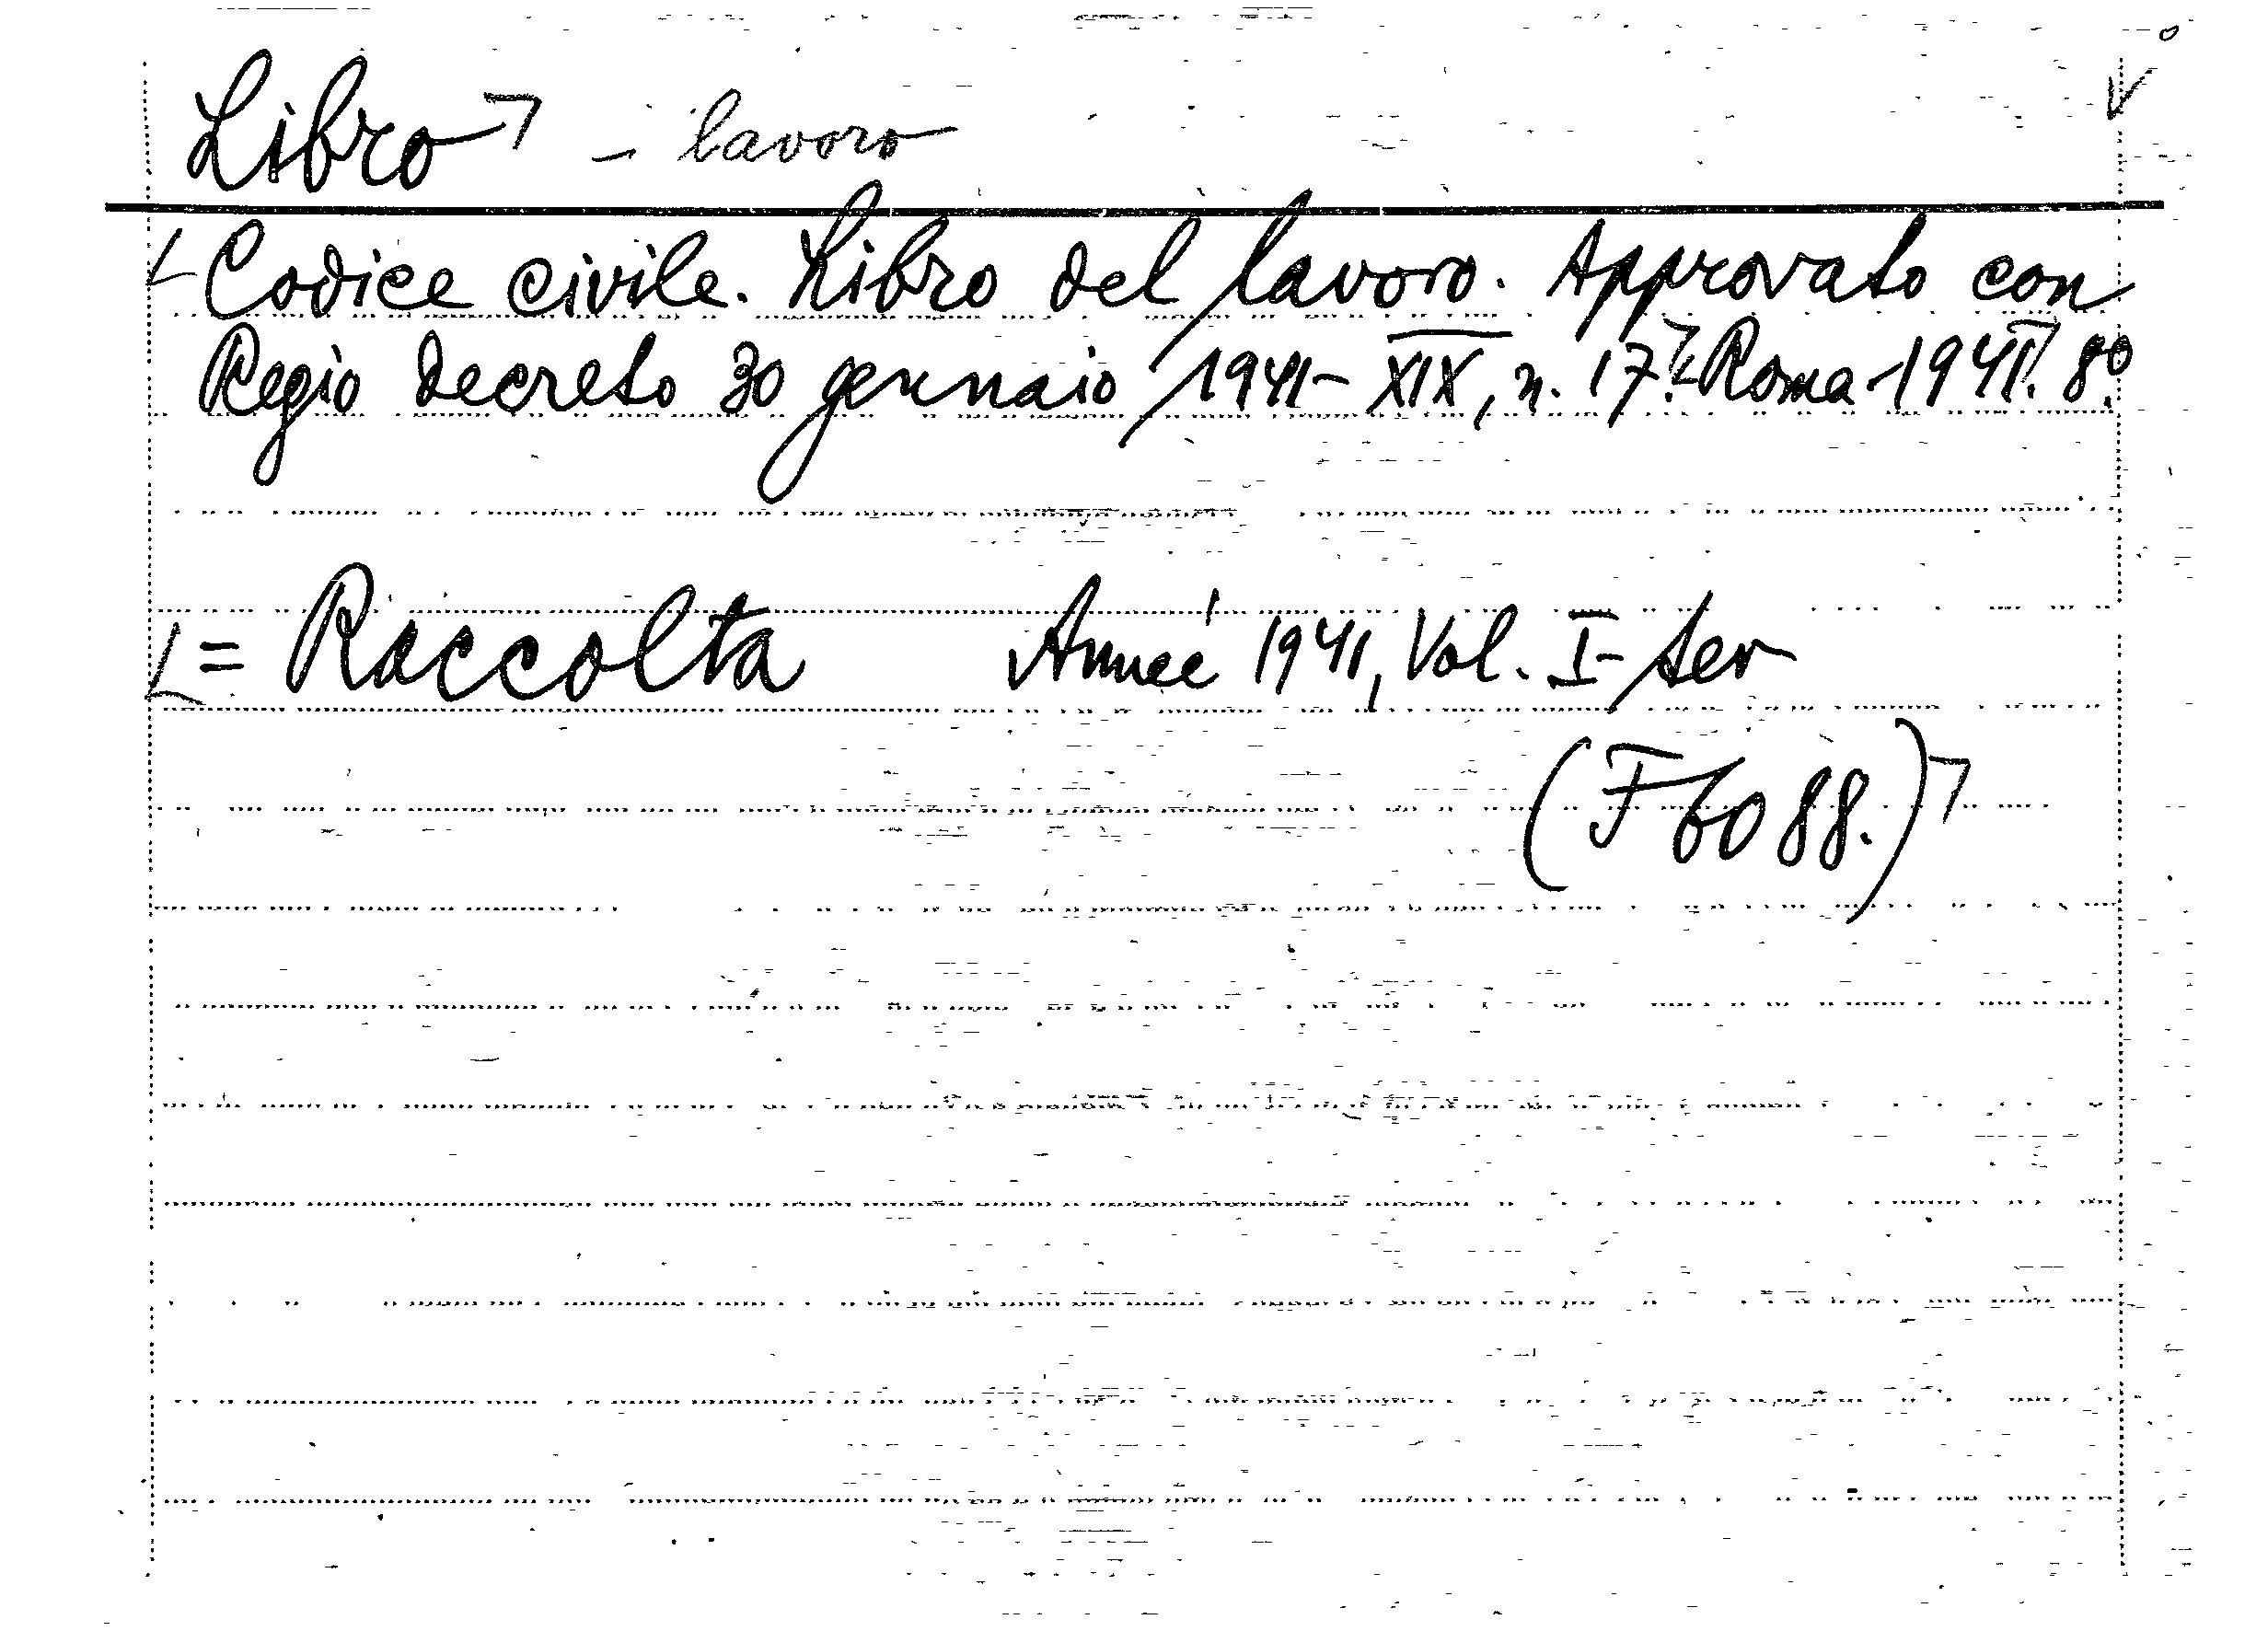 Libro - lavoro
Codice civile. Libro del lavoro. Approvato con
Regio decreto 30 gennaio 1941-XIX, n. 17. Roma 1941. 8º.
= Raccolta Année 1941, Vol. I-ter
(F 6088.)